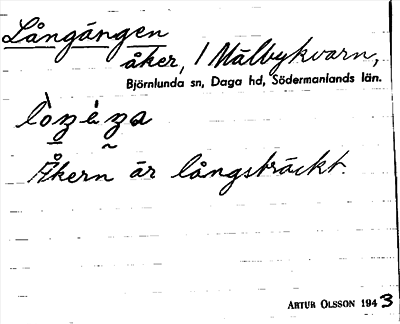 Långängen
åker, / Målbykvarn,
Björnlunda sn, Daga hd, Södermanlands län.
Åkern är långsträckt.
ARTUR OLSSON 1943